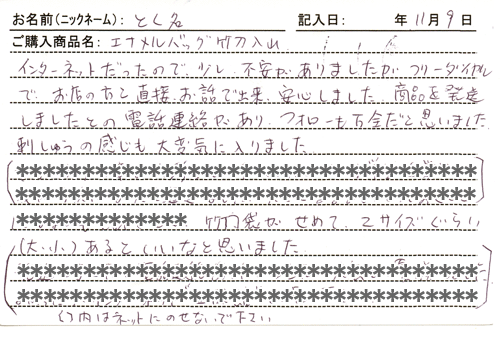 お名前(ニックネーム): とく名 記入日: 年 11月 9日
ご購入商品名: エナメルバッグ竹刀入
インターネットだったので 少し 不安がありましたが フリーダイヤル
で、お店の方と 直接 お話で出来、安心しました 商品を発送
しましたとの 電話連絡があり、フォローも万全だと思いました
刺しゅうの感じも 大変気に入りました
(***********************************
***********************************)
(************* 竹刀袋が せめて 2サイズぐらい
(大・小)あると いいなと思いました
(***********************************
***********************************)
( )内はネットにのせないで下さい